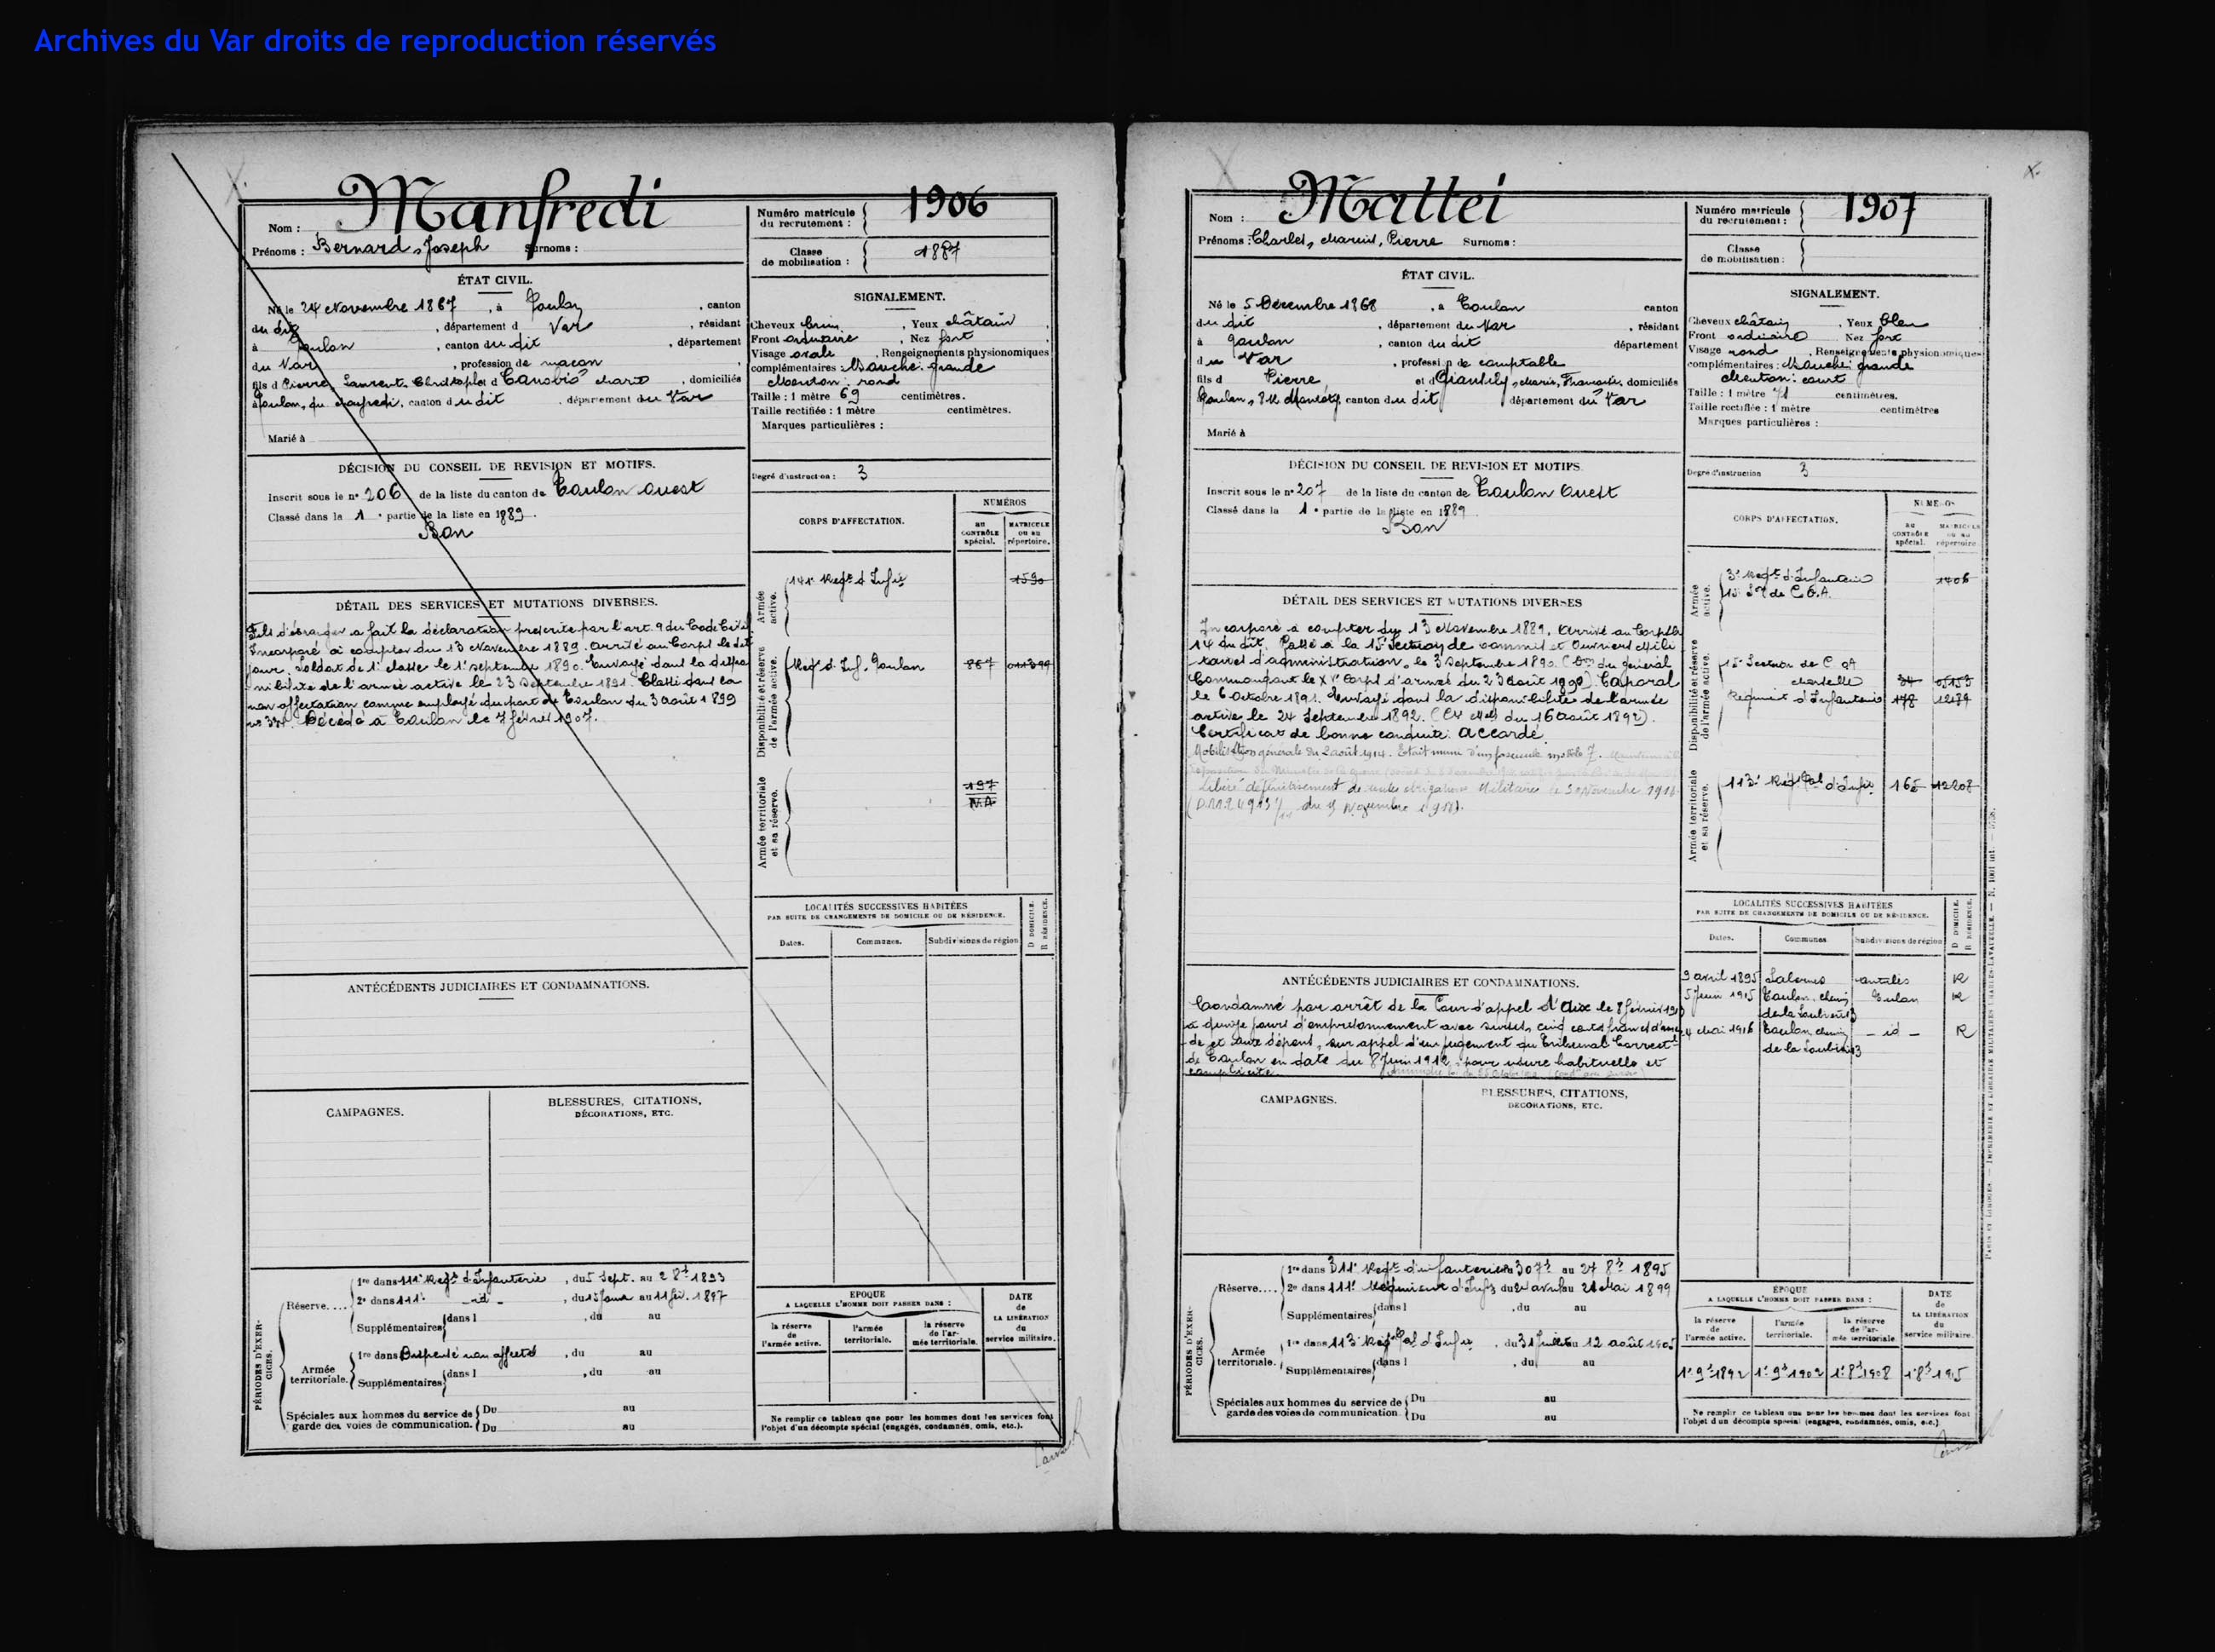 Archives du Var droits de reproduction réservés
Manfredi
1906
Nom :
Prénoms : Bernard, Joseph Surnoms :
Numéro matricule
du recrutement :
Classe
de mobilisation : 1887
ÉTAT CIVIL.
Né le 24 Novembre 1867, à Toulon, canton
du dit, département d Var, résidant
à Toulon, canton du dit, département
du Var, profession de maçon
fils d Pierre, Laurent, Christophe et d Marie, domiciliés
à Toulon, canton du dit, département du Var
Marié à
SIGNALEMENT.
Cheveux brun, Yeux châtain,
Front ordinaire, Nez fort
Visage ovale, Renseignements physionomiques
complémentaires : Bouche : grande
Menton : rond
Taille : 1 mètre 69 centimètres.
Taille rectifiée : 1 mètre centimètres.
Marques particulières :
DÉCISION DU CONSEIL DE REVISION ET MOTIFS.
Inscrit sous le n° 206 de la liste du canton de Toulon Ouest
Classé dans la 1e partie de la liste en 1889.
Bon
Degré d'instruction : 3
CORPS D'AFFECTATION.
NUMÉROS
au
CONTRÔLE
spécial.
MATRICULE
ou au
répertoire.
Armée
active.
141e Regt d'Infie 1590
Disponibilité et réserve
de l'armée active.
Regt d'Inf. Toulon 867
Armée territoriale
et sa réserve.
197
N.A.
DÉTAIL DES SERVICES ET MUTATIONS DIVERSES.
Fils d'étranger a fait la déclaration prescrite par l'art. 9 du Code Civil
Incorporé à compter du 13 Novembre 1889. Arrivé au Corps le dit
jour. Soldat de 1e classe le 1e septembre 1890. Envoyé dans la dispo
nibilité de l'armée active le 23 Septembre 1891. Classé dans la
non affectation comme employé du port de Toulon du 3 août 1899
Décédé à Toulon le 7 février 1907.
ANTÉCÉDENTS JUDICIAIRES ET CONDAMNATIONS.
LOCALITÉS SUCCESSIVES HABITÉES
PAR SUITE DE CHANGEMENTS DE DOMICILE OU DE RÉSIDENCE.
Dates. Communes. Subdivisions de région
D DOMICILE.
R RÉSIDENCE.
CAMPAGNES.
BLESSURES, CITATIONS,
DÉCORATIONS, ETC.
PÉRIODES D'EXER-
CICES.
Réserve....
1re dans 111e Regt d'Infanterie, du 5 Sept. au 2 8bre 1893
2e dans 111e -id-, du 15 Janv au 11 fév. 1897
Supplémentaires dans l , du au
Armée
territoriale.
1re dans Dispensé non affecté, du au
Supplémentaires dans l , du au
Spéciales aux hommes du service de
garde des voies de communication.
Du au
Du au
ÉPOQUE
A LAQUELLE L'HOMME DOIT PASSER DANS :
la réserve
de
l'armée active.
l'armée
territoriale.
la réserve
de l'ar-
mée territoriale.
DATE
de
LA LIBÉRATION
du
service militaire.
Ne remplir ce tableau que pour les hommes dont les services font
l'objet d'un décompte spécial (engagés, condamnés, omis, etc.).
Mattei
1907
Nom :
Prénoms : Charles, Marius, Pierre Surnoms :
Numéro matricule
du recrutement :
Classe
de mobilisation :
ÉTAT CIVIL.
Né le 5 Décembre 1868, à Toulon canton
du dit, département du Var, résidant
à Toulon, canton du dit département
d u Var, profession de comptable
fils d Pierre, et d Marie, domiciliés
Toulon, canton du dit département du Var
Marié à
SIGNALEMENT.
Cheveux châtain, Yeux bleu
Front ordinaire Nez fort
Visage rond, Renseignements physionomiques
complémentaires : Bouche : grande
Menton : court
Taille : 1 mètre 71 centimètres.
Taille rectifiée : 1 mètre centimètres
Marques particulières :
DÉCISION DU CONSEIL DE REVISION ET MOTIFS
Inscrit sous le n° 207 de la liste du canton de Toulon Ouest
Classé dans la 1e partie de la liste en 1889
Bon
Degré d'instruction 3
CORPS D'AFFECTATION.
NUMÉROS
au
CONTRÔLE
spécial.
MATRICULE
ou au
répertoire
Armée
active.
3e Regt d'Infanterie 1406
15e Son de C.O.A.
Disponibilité et réserve
de l'armée active.
15e Section de C. OA
Marseille 34
Régiment d'Infanterie
Armée territoriale
et sa réserve.
113e Regt Tal d'Infie 165 12208
DÉTAIL DES SERVICES ET MUTATIONS DIVERSES
Incorporé à compter du 13 Novembre 1889. Arrivé au Corps le
14 du dit. Passé à la 15e Section de commis et Ouvriers Mili-
taires d'administration, le 3 Septembre 1890. (Don du général
Commandant le XVe Corps d'armée du 23 août 1890). Caporal
le 6 Octobre 1891. Envoyé dans la disponibilité de l'armée
active le 24 Septembre 1892. (Cre Mlle du 16 août 1892).
Certificat de bonne conduite : accordé
Mobilisation générale du 2 août 1914. Etait muni d'un fascicule modèle Z.
Libéré définitivement de toutes obligations Militaires le 30 Novembre 1918
ANTÉCÉDENTS JUDICIAIRES ET CONDAMNATIONS.
Condamné par arrêt de la Cour d'appel d'Aix le 8 février 1913
à quinze jours d'emprisonnement avec sursis, cinq cents francs d'amen-
de et aux dépens, sur appel d'un jugement du Tribunal Correctel
de Toulon en date du 8 Juin 1912, pour usure habituelle et
complicité.
LOCALITÉS SUCCESSIVES HABITÉES
PAR SUITE DE CHANGEMENTS DE DOMICILE OU DE RÉSIDENCE.
Dates. Communes Subdivisions de région
D DOMICILE.
R RÉSIDENCE.
9 avril 1895 Salernes Antibes R
1915 Toulon, chemin Toulon R
de la Loubière 13
4 Mai 1916 Toulon, chemin - id - R
de la Loubière 13
CAMPAGNES.
BLESSURES, CITATIONS,
DÉCORATIONS, ETC.
PÉRIODES D'EXER-
CICES.
Réserve....
1re dans 311e Regt d'infanterie du 30 7bre au 27 8bre 1895
2e dans 111e Régiment d'Infie du 24 avril au 21 Mai 1899
Supplémentaires dans l , du au
Armée
territoriale.
1re dans 113e Regt Tal d'Infie, du 31 Juillet au 12 août 1905
Supplémentaires dans l , du au
Spéciales aux hommes du service de
garde des voies de communication
Du au
Du au
ÉPOQUE
A LAQUELLE L'HOMME DOIT PASSER DANS :
la réserve
de
l'armée active.
l'armée
territoriale.
la réserve
de l'ar-
mée territoriale
DATE
de
LA LIBÉRATION
du
service militaire.
1e 9bre 1892 1e 9bre 1902 1e 8bre 1908 1e 8bre 1915
Ne remplir ce tableau que pour les hommes dont les services font
l'objet d'un décompte spécial (engagés, condamnés, omis, etc.)